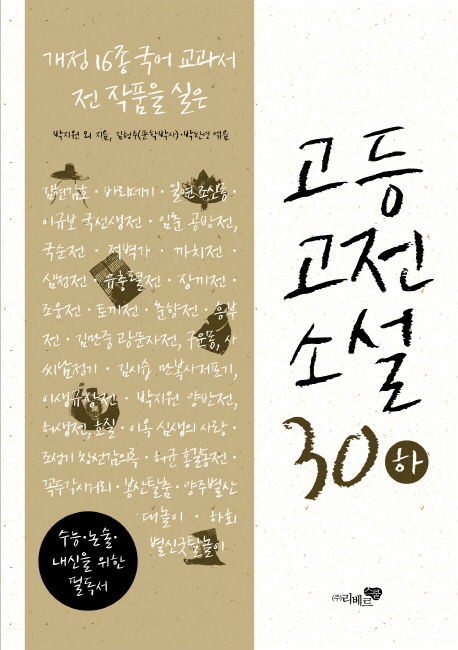 개정 16종 국어 교과서
전 작품을 실은
박지원 외 지음, 김형주(문학박사)·박찬영 엮음
김현감호 · 바리데기 · 일연 조신몽 ·
이규보 국선생전 · 임춘 공방전,
국순전 · 적벽가 · 까치전 ·
심청전 · 유충렬전 · 장끼전 ·
조웅전 · 토끼전 · 춘향전 · 흥부
전 · 김만중 광문자전, 구운몽, 사
씨남정기 · 김시습 만복사저포기,
이생규장전 · 박지원 양반전,
허생전, 호질 · 이옥 심생의 사랑 ·
조성기 창선감의록 · 허균 홍길동전 ·
꼭두각시거리 · 봉산탈춤 · 양주별산
대놀이 · 하회
별신굿탈놀이
수능·논술·
내신을 위한
필독서
고등
고전
소설
30 하
(주)리베르 스쿨